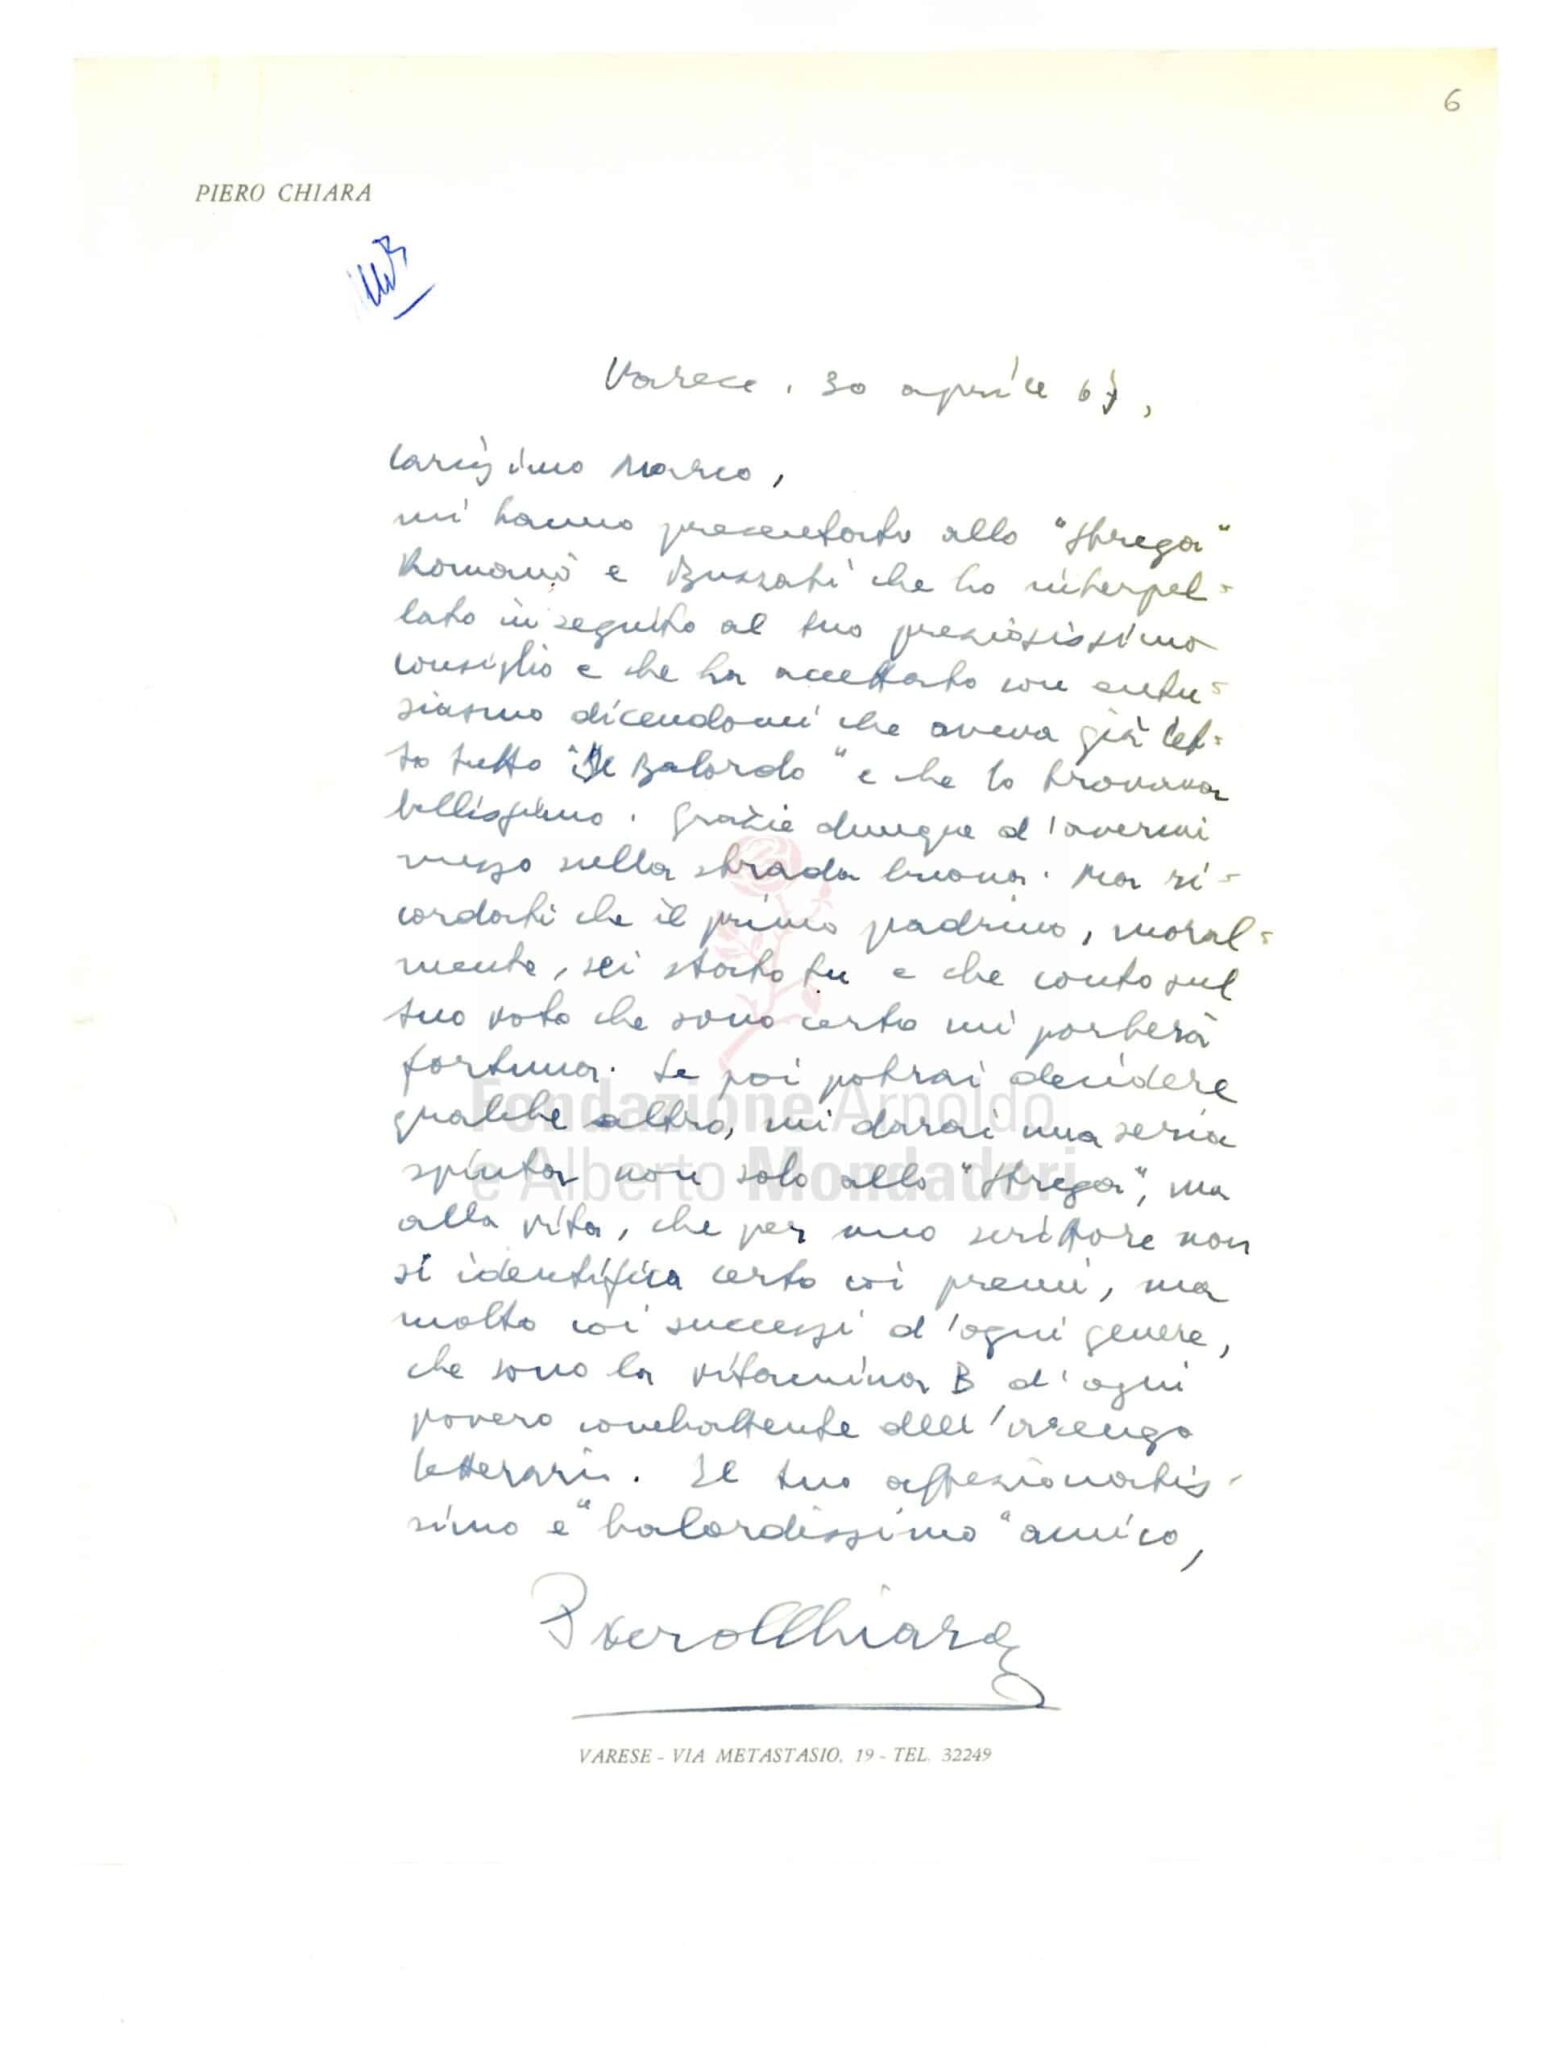 6
PIERO CHIARA
Varese, 30 aprile 67,
Carissimo Marco,
mi hanno presentato allo "Strega"
Romanò e Buzzati che ho interpel-
lato in seguito al tuo preziosissimo
consiglio e che ha accettato con entu-
siasmo dicendomi che aveva già let-
to tutto "Il Balordo" e che lo trovava
bellissimo. Grazie dunque d'avermi
messo sulla strada buona. Ma ri-
cordati che il primo padrino, moral-
mente, sei stato tu e che conto sul
tuo voto che sono certo mi porterà
fortuna. Se poi potrai decidere
qualche altro, mi darai una seria
spinta non solo allo "Strega", ma
alla vita, che per uno scrittore non
si identifica certo coi premi, ma
molto coi successi d'ogni genere,
che sono la vitamina B d'ogni
povero combattente dell'arengo
letterario. Il tuo affezionatis-
simo e "balordissimo" amico,
Piero Chiara
VARESE - VIA METASTASIO, 19 - TEL. 32249
Fondazione Arnoldo
e Alberto Mondadori